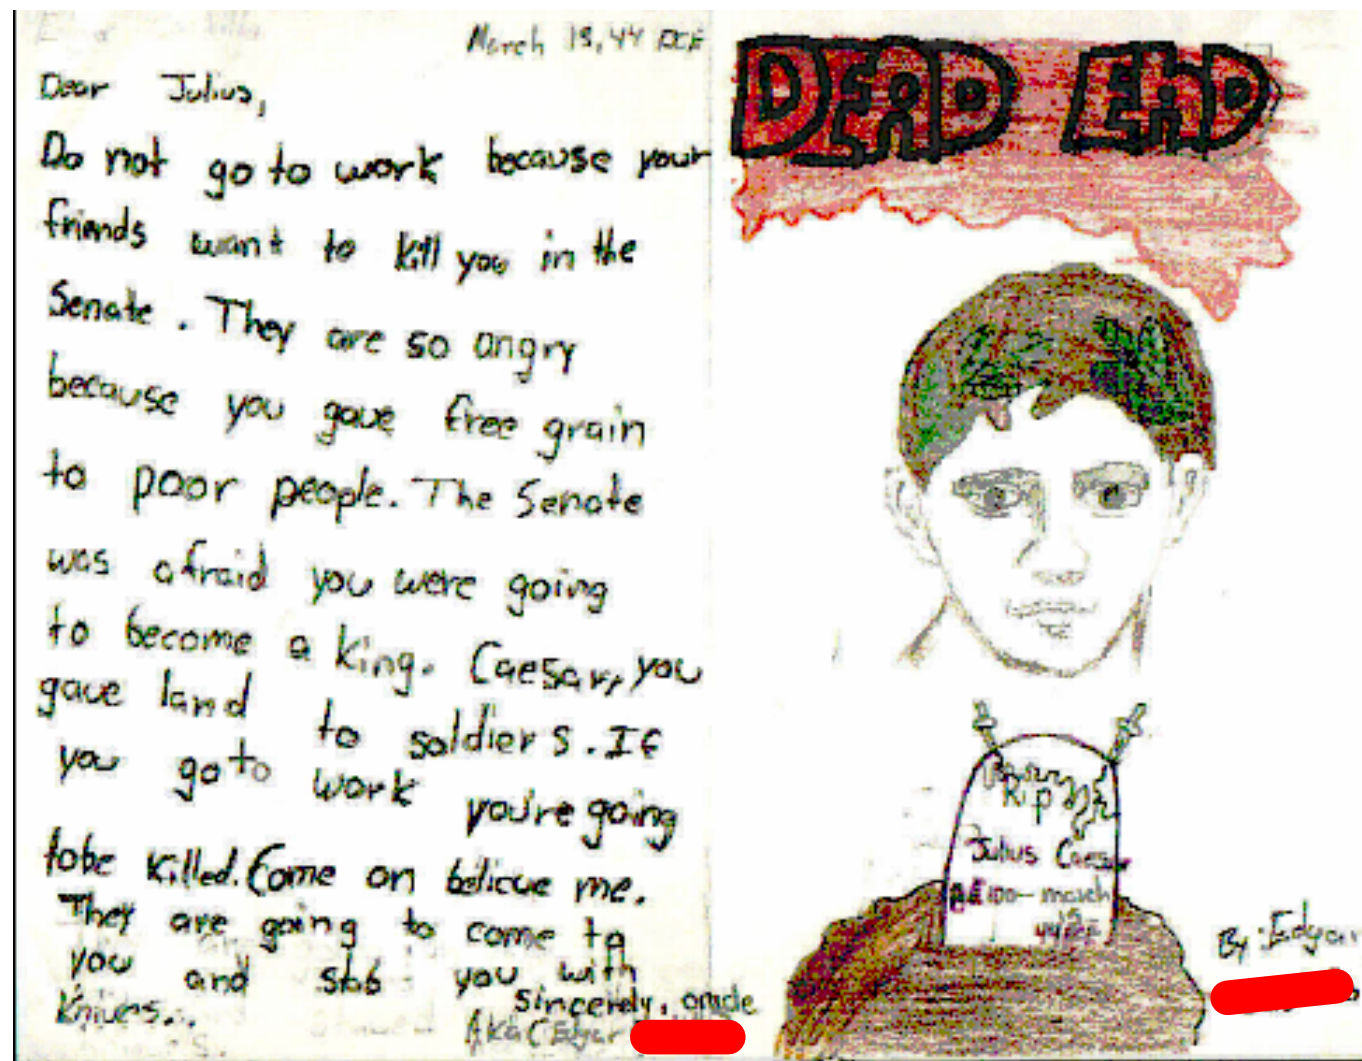 March 15, 44 BCE
Dear Julius,
Do not go to work because your
friends want to kill you in the
Senate. They are so angry
because you gave free grain
to poor people. The Senate
was afraid you were going
to become a king. Caesar, you
gave land to soldiers. If
you go to work you're going
to be killed. Come on believe me.
They are going to come to
you and stab you with
knives..
Sincerely, oracle
AKA (Edgar
DEAD END
Rip
Julius Caesar
100- march
15
44 BCE
By: Edgar